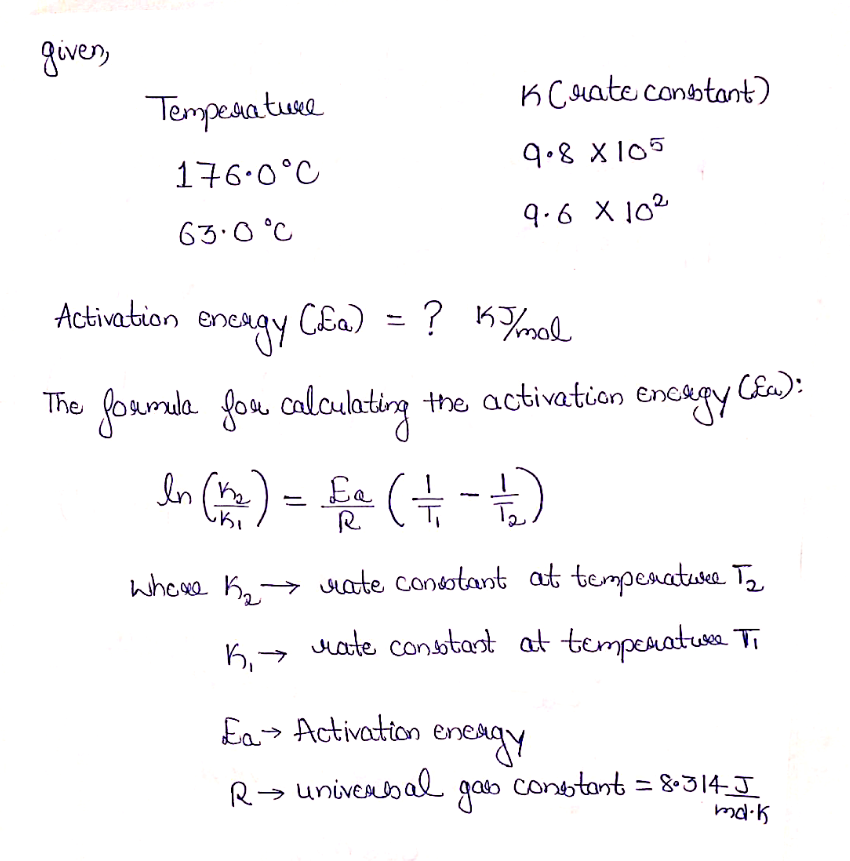 given,
Temperature K (rate constant)
176.0°C 9.8 X 10⁵
63.0 °C 9.6 X 10²
Activation energy (Ea) = ? KJ/mol
The formula for calculating the activation energy (Ea):
ln (K₂/K₁) = Ea/R (1/T₁ - 1/T₂)
where K₂ → rate constant at temperature T₂
K₁ → rate constant at temperature T₁
Ea → Activation energy
R → universal gas constant = 8.314 J/mol·K